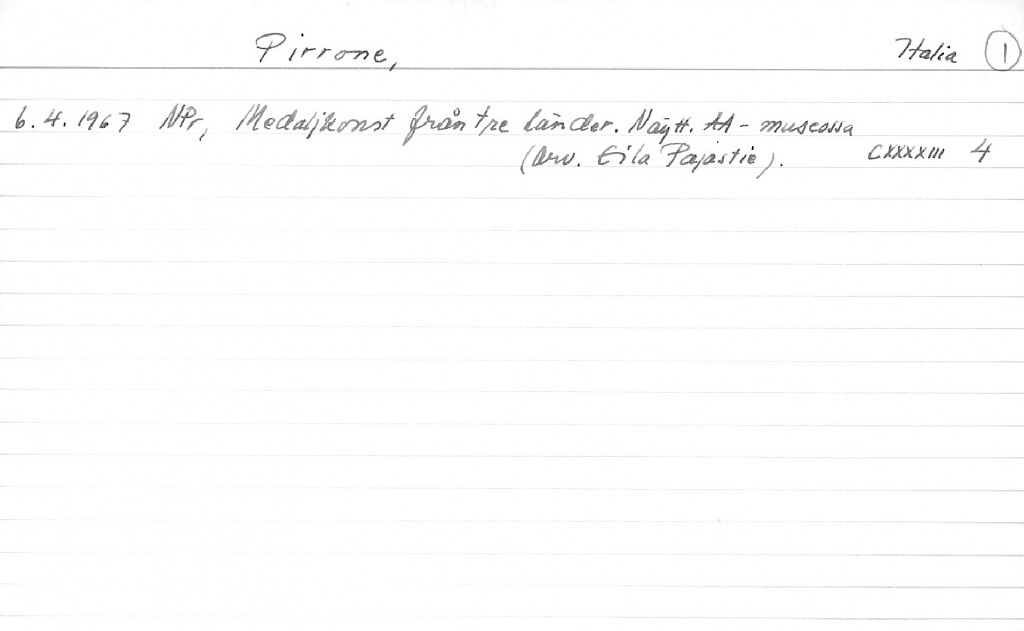 Pirrone, Italia 1
6.4.1967 NPr, Medaljkonst från tre länder. Näytt. AA-museossa
(Arv. Eila Pajastie). CXXXXIII 4